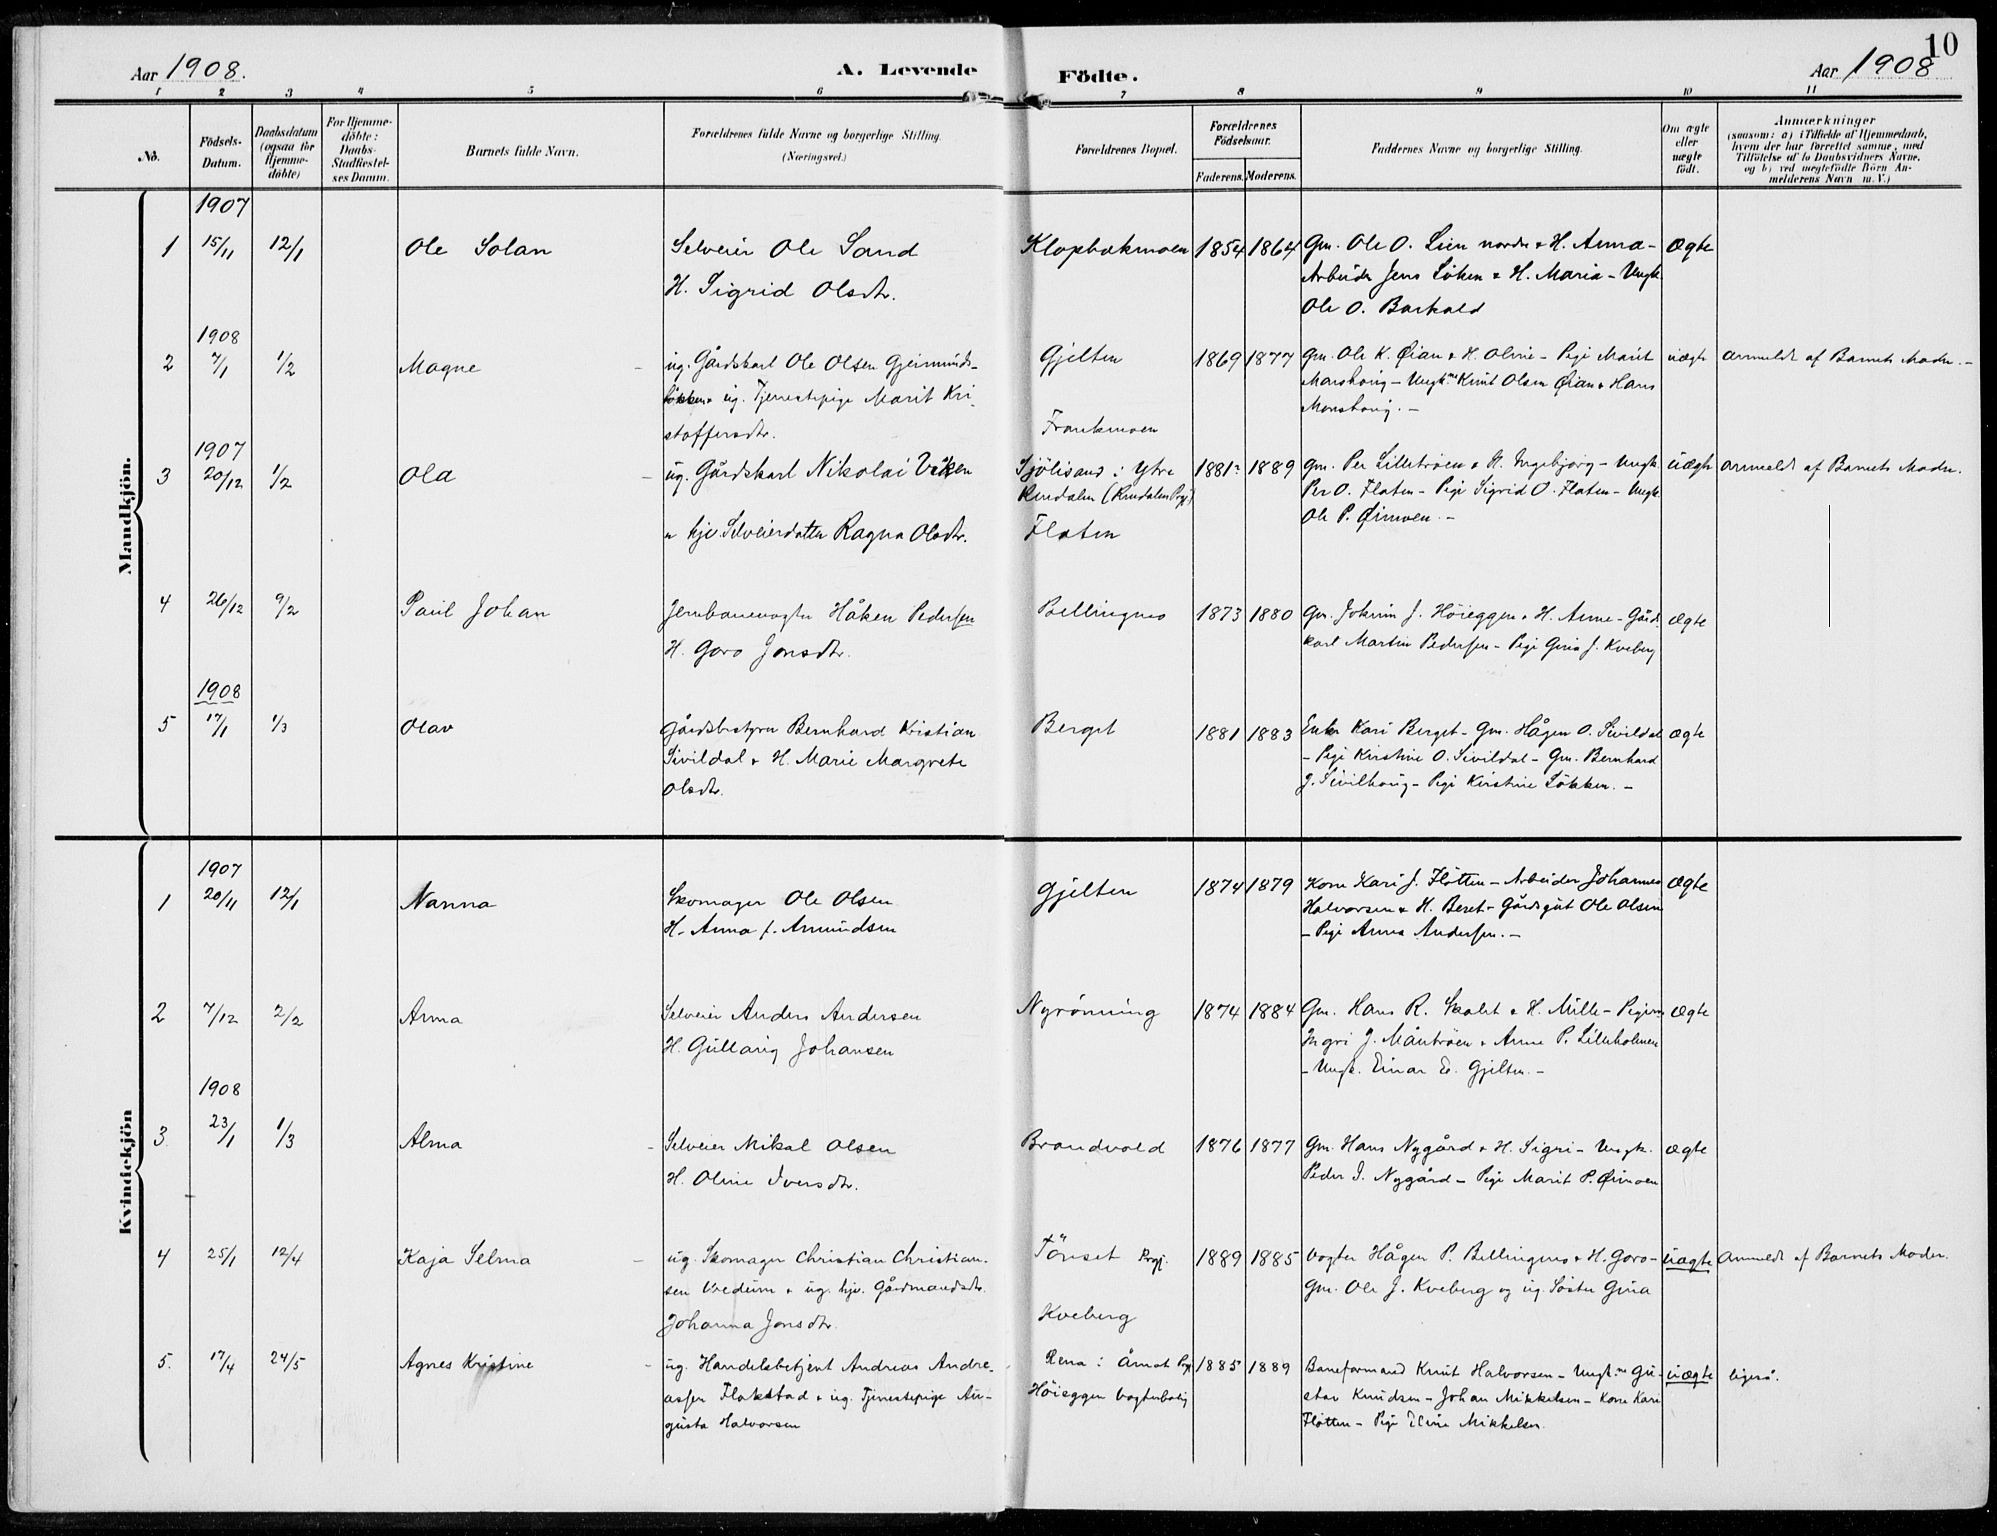 10
Aar 1908.
A. Levende
Födte.
Aar 1908
1 2 3 4 5 6 7 8 9 10 11
No.
Födsels-
Datum.
Daabsdatum
(ogsaa for
Hjemme-
döbte)
For Hjemme-
döbte:
Daabs-
Stadfæstel-
ses Datum.
Barnets fulde Navn.
Forældrenes fulde Navne og borgerlige Stilling.
(Næringsvei.)
Forældrenes Bopæl.
Forældrenes
Födselsaar.
Faderens. Moderens.
Faddernes Navne og borgerlige Stilling.
Om ægte
eller
uægte
födt.
Anmærkninger
(saasom: a) i Tilfælde af Hjemmedaab,
hvem der har forrettet samme, med
Tilföielse af to Daabsvidners Navne,
og b) ved uægtefödte Börn An-
melderens Navn m. V.)
Mandkjön.
1907
1 15/11 12/1 Ole Solan Selveier Ole Sand Klopbækmoen 1854 1864 Gm. Ole O. Lien nordre & H. Anna - Ægte
H. Sigrid Olsdtr. Arbeider Jens Löken & H. Maria - Ungk.
Ole O. Barkald
1908
2 7/1 1/2 Magne - ug. Gårdskarl Ole Olsen Gjermunds- Gjelten 1869 1877 Gm. Ole K. Øian & H. Oline - Pige Marit uægte Anmeldt af Barnets Moder. -
lökken & ug. Tjenestepige Marit Kri- Monshoug - Ungk.ne Knut Olsen Øian & Hans
stoffersdtr. Frankmoen Monshoug. -
1907
3 20/12 1/2 Ola - ug. Gårdskarl Nikolai Viken Sjölisand i Ytre 1881 1889 Gm. Per Lilletröen & H. Ingebjörg - Ungk. uægte anmeldt af Barnets Moder.
Rendalen (Rendalen Prgj.) Per O. Floten - Pige Sigrid O. Floten - Ungk.
& hjv. Selveierdatter Ragna Olsdtr. Floten Ole P. Øimoen. -
4 26/12 9/2 Paul Johan Jernbanevogter Håken Pedersen Bellingmo 1873 1880 Gm. Jokum J. Höieggen & H. Anne - Gårds- Ægte
H. Goro Jonsdtr. karl Martin Pedersen - Pige Gina J. Kveberg
1908
5 17/1 1/3 Olav Gårdsbestyrer Bernhard Kristian Berget 1881 1883 Enke Kari Berget - Gm. Hågen O. Sivildal Ægte
Sivildal & H. Marie Margrete - Pige Kirstine O. Sivildal - Gm. Bernhard
Olsdtr. J. Sivilhoug - Pige Kirstine Lökken. -
Kvindekjön
1907
1 20/11 12/1 Nanna Skomager Ole Olsen Gjelten 1874 1879 Kone Kari J. Flötten - Arbeider Johannes Ægte
H. Anna f. Amundsen Halvorsen & H. Beret - Gårdsgut Ole Olsen
- Pige Anna Andersen. -
2 7/12 2/2 Anna Selveier Anders Andersen Nyrönning 1874 1884 Gm. Hans R. Skolet & H. Mille - Pigerne Ægte
H. Gullaug Johansen Ingri J. Måntröen & Anne P. Lilleholmen
- Ungk. Einar E. Gjelten. -
1908
3 23/1 1/3 Alma - Selveier Mikal Olsen Brandvold 1876 1877 Gm. Hans Nygård & H. Sigri - Ungk. Ægte
H. Oline Iversdtr. Peder I. Nygård - Pige Marit P. Øimoen
4 25/1 12/4 Kaja Selma - ug. Skomager Christian Christian- Tönset Prgj. 1889 1885 Vogter Hågen P. Bellingmo & H. Goro - uægte Anmeldt af Barnets Moder.
sen Vredum & ug. hjv. Gårdmandsdtr. Gm. Ole J. Kveberg og ug. Söster Gina
Johanna Jonsdtr. Kveberg
5. 17/4 24/5 Agnes Kristine - ug. Handelsbetjent Andreas Andre- Rena i Åmot Prgj. 1885 1889 Baneformand Knut Halvorsen - Ungk.ne Gu- uægte ligeså.
assen Flakstad & ug. Tjenestepige Au- Höieggen Vogterbolig stav Knudsen - Johan Mikkelsen - Kone Kari
gusta Halvorsen Flötten - Pige Eline Mikkelsen.